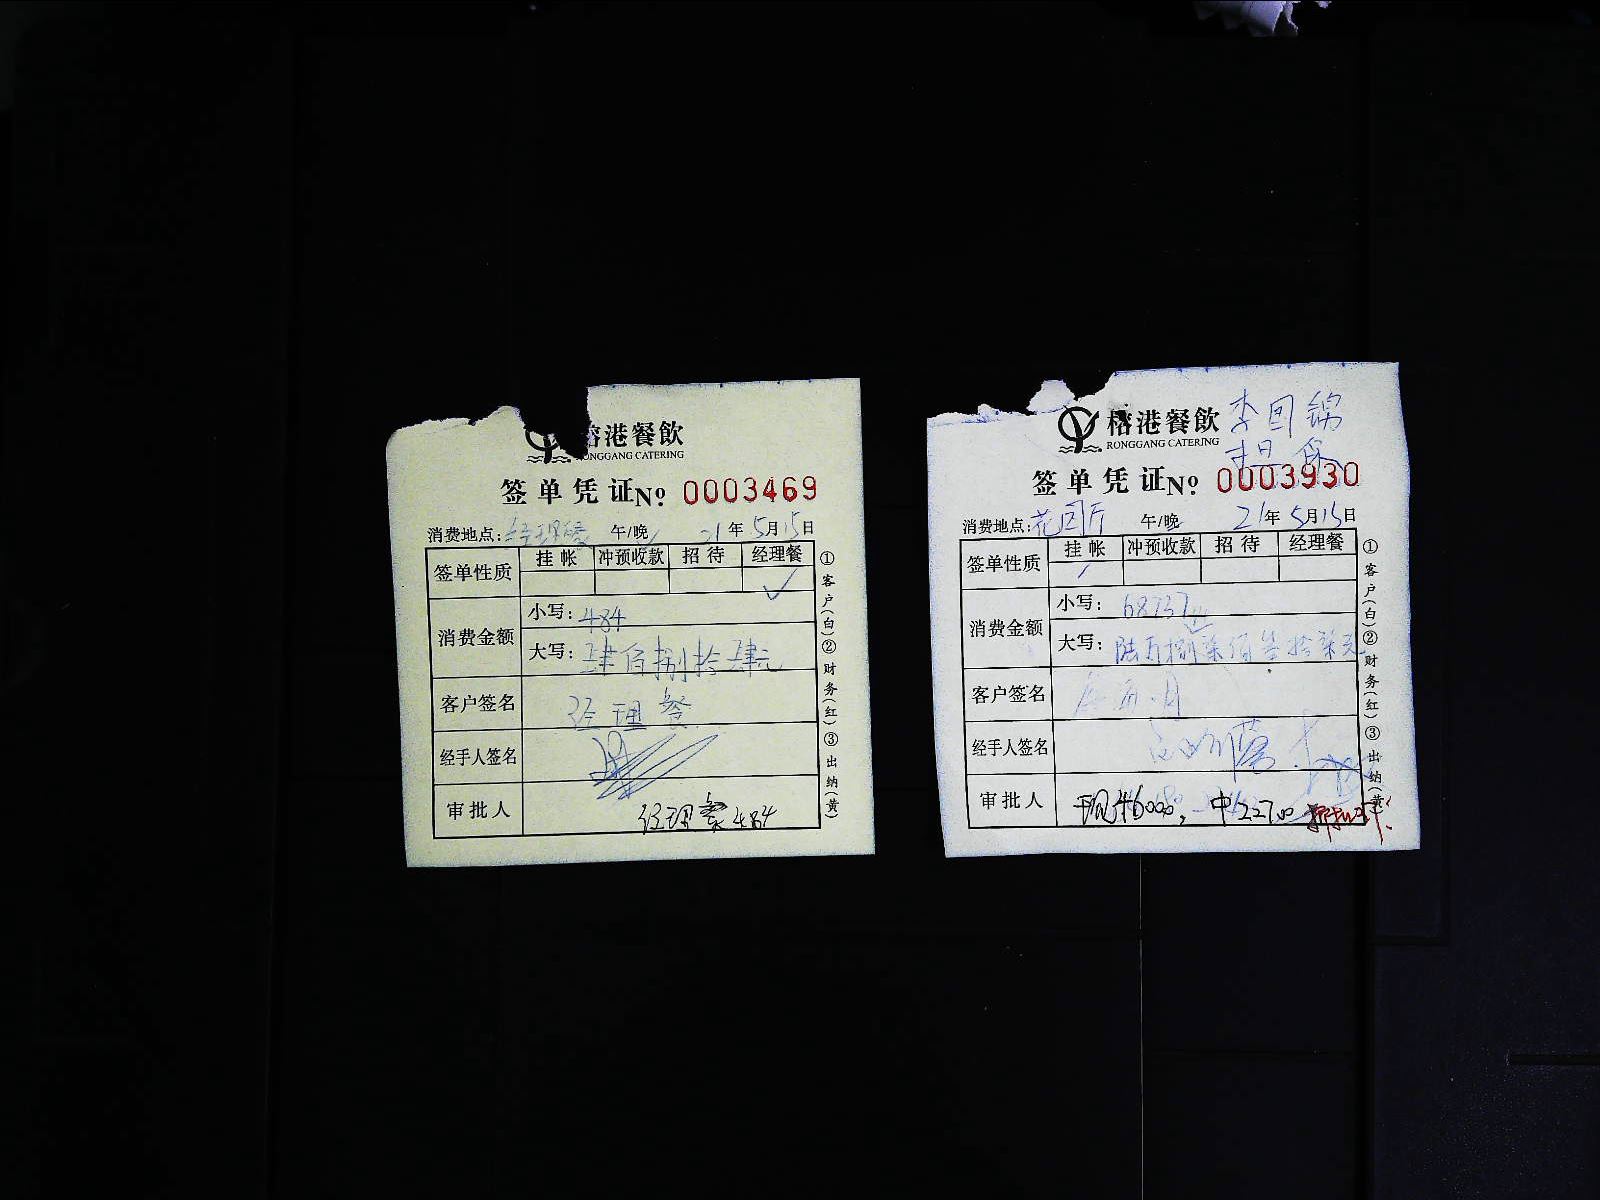 港餐飲
ONGGANG CATERING
签单凭证No. 0003469
消费地点: 经理餐 午/晚 21年5月15日
签单性质 挂帐 冲预收款 招待 经理餐
✓
消费金额 小写: 484
大写: 肆佰捌拾肆元
客户签名 经理餐
经手人签名
审批人 经理餐484
①客户(白)②财务(红)③出纳(黄)
榕港餐飲 李回锦
RONGGANG CATERING
签单凭证No. 0003930
消费地点: 花园厅 午/晚 21年5月15日
签单性质 挂帐 冲预收款 招待 经理餐
消费金额 小写: 68737
大写: 陆万捌柒佰叁拾柒元
客户签名
经手人签名
审批人 现46000, 中22700
①客户(白)②财务(红)③出纳(黄)